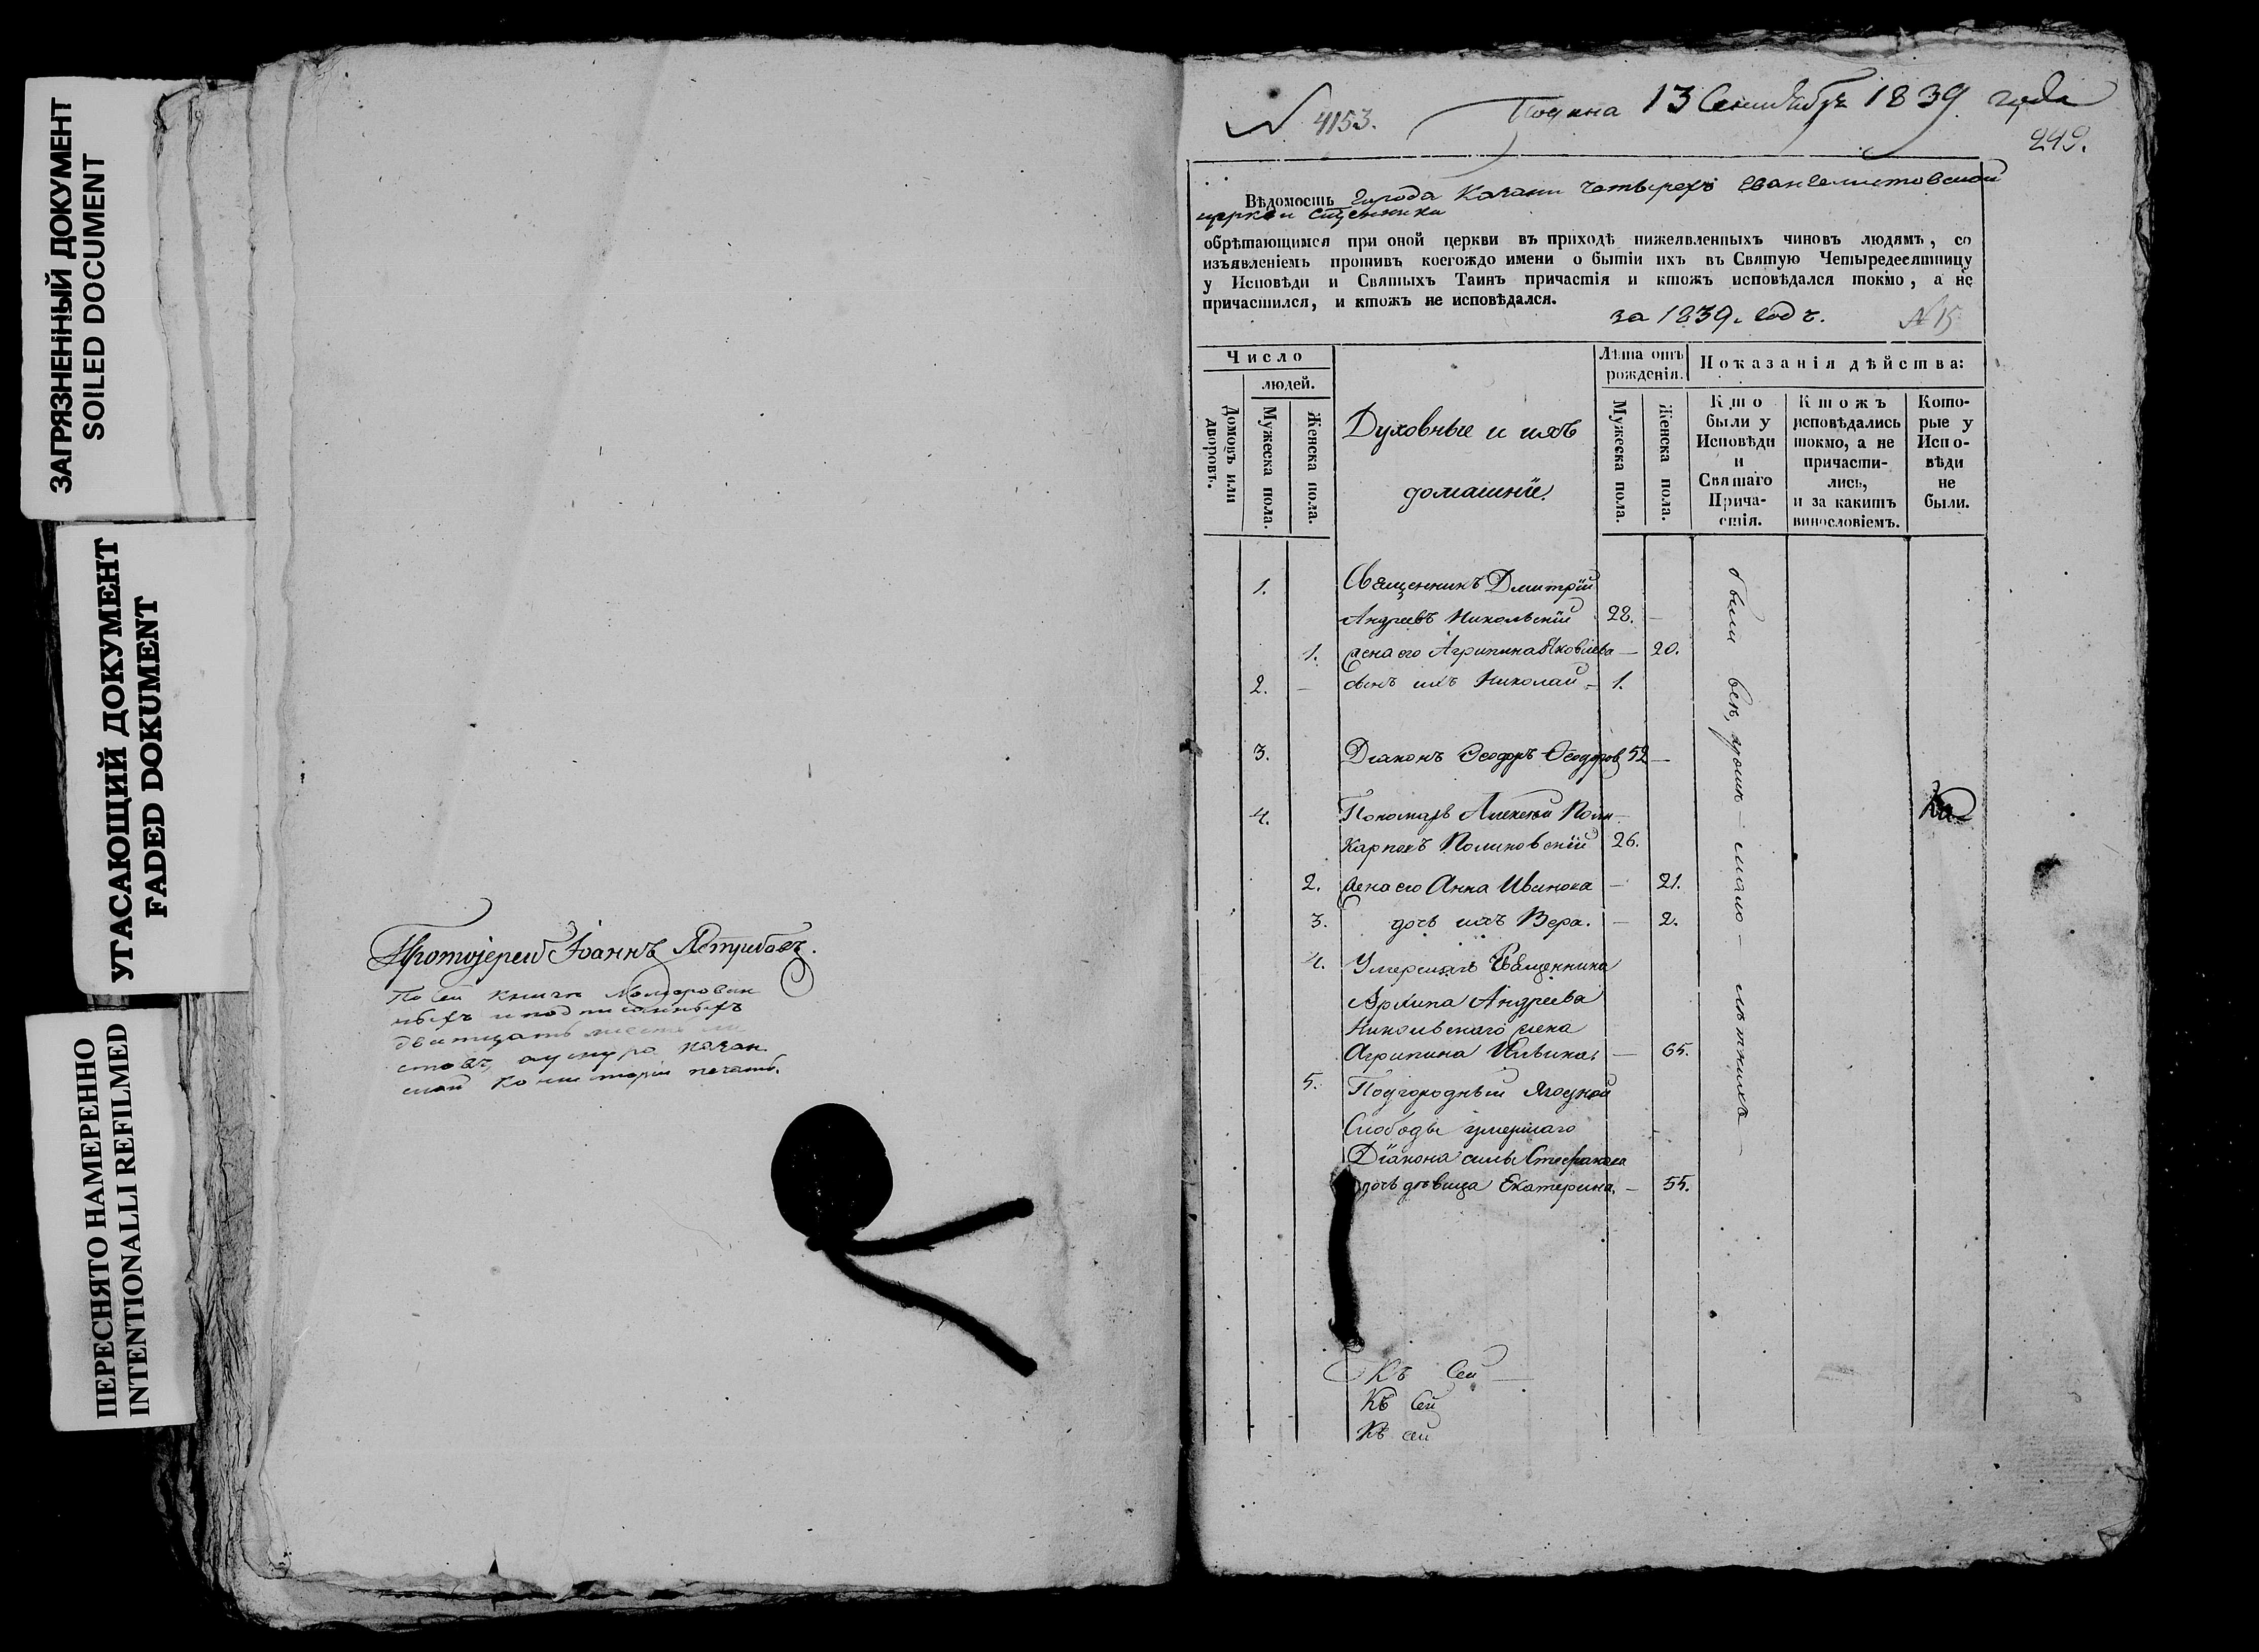 ЗАГРЯЗНЕННЫЙ ДОКУМЕНТ
SOILED DOCUMENT
УГАСАЮЩИЙ ДОКУМЕНТ
FADED DOKUMENT
ПЕРЕСНЯТО НАМЕРЕННО
INTENTIONALLI REFILMED
Протоіерей Іоаннъ Ястребовъ.
По сей книгѣ
ныхъ и подписанныхъ
дватцать
казан
ской печать.
N 4153.
13 Сентября 1839 года
249.
Вѣдомость города Казани четырехъ Евангелистовской
церкви
обрѣтающимся при оной церкви въ приходѣ нижеявленныхъ чиновъ людямъ, со
изъявленіемъ противъ коегождо имени о бытіи ихъ въ Святую Четыредесятницу
у Исповѣди и Святыхъ Таинъ причастія и ктожъ исповѣдался токмо, а не
причастился, и ктожъ не исповѣдался.
за 1839. годъ. № 15
Число
людей.
Домовъ или дворовъ.
Мужеска пола.
Женска пола.
Духовные и ихъ
домашніе.
Лѣта отъ
рожденія.
Мужеска пола.
Женска пола.
Показанія дѣйства:
Кто
были у
Исповѣди
и
Святаго
Прича-
стія.
Ктожъ
исповѣдались
токмо, а не
причасти-
лись,
и за какимъ
винословіемъ.
Кото-
рые у
Испо-
вѣди
не
были.
1. Священникъ Дмитрій
Андреевъ Никольскій 28. —
1. жена его Агрипина Яковлева — 20.
2. — сынъ ихъ Николай — 1.
3. Діаконъ Ѳеодоръ Ѳеодоров 52 —
4. Пономарь Алексѣй Поли-
карповъ Полиновскій 26.
2. жена его Анна Иванова — 21.
3. дочь ихъ Вера. — 2.
4. Умершаго Священника
Архипа Андреева
Никольскаго жена
Агрипина — 65.
5. Подгородный Ягодной
Слободы умершаго
Діакона Силы Стефанова
дочь дѣвица Екатерина. — 55.
были всѣ, кромѣ — мало — лѣтнихъ —
Къ Сей —
Къ Сей
Къ сей